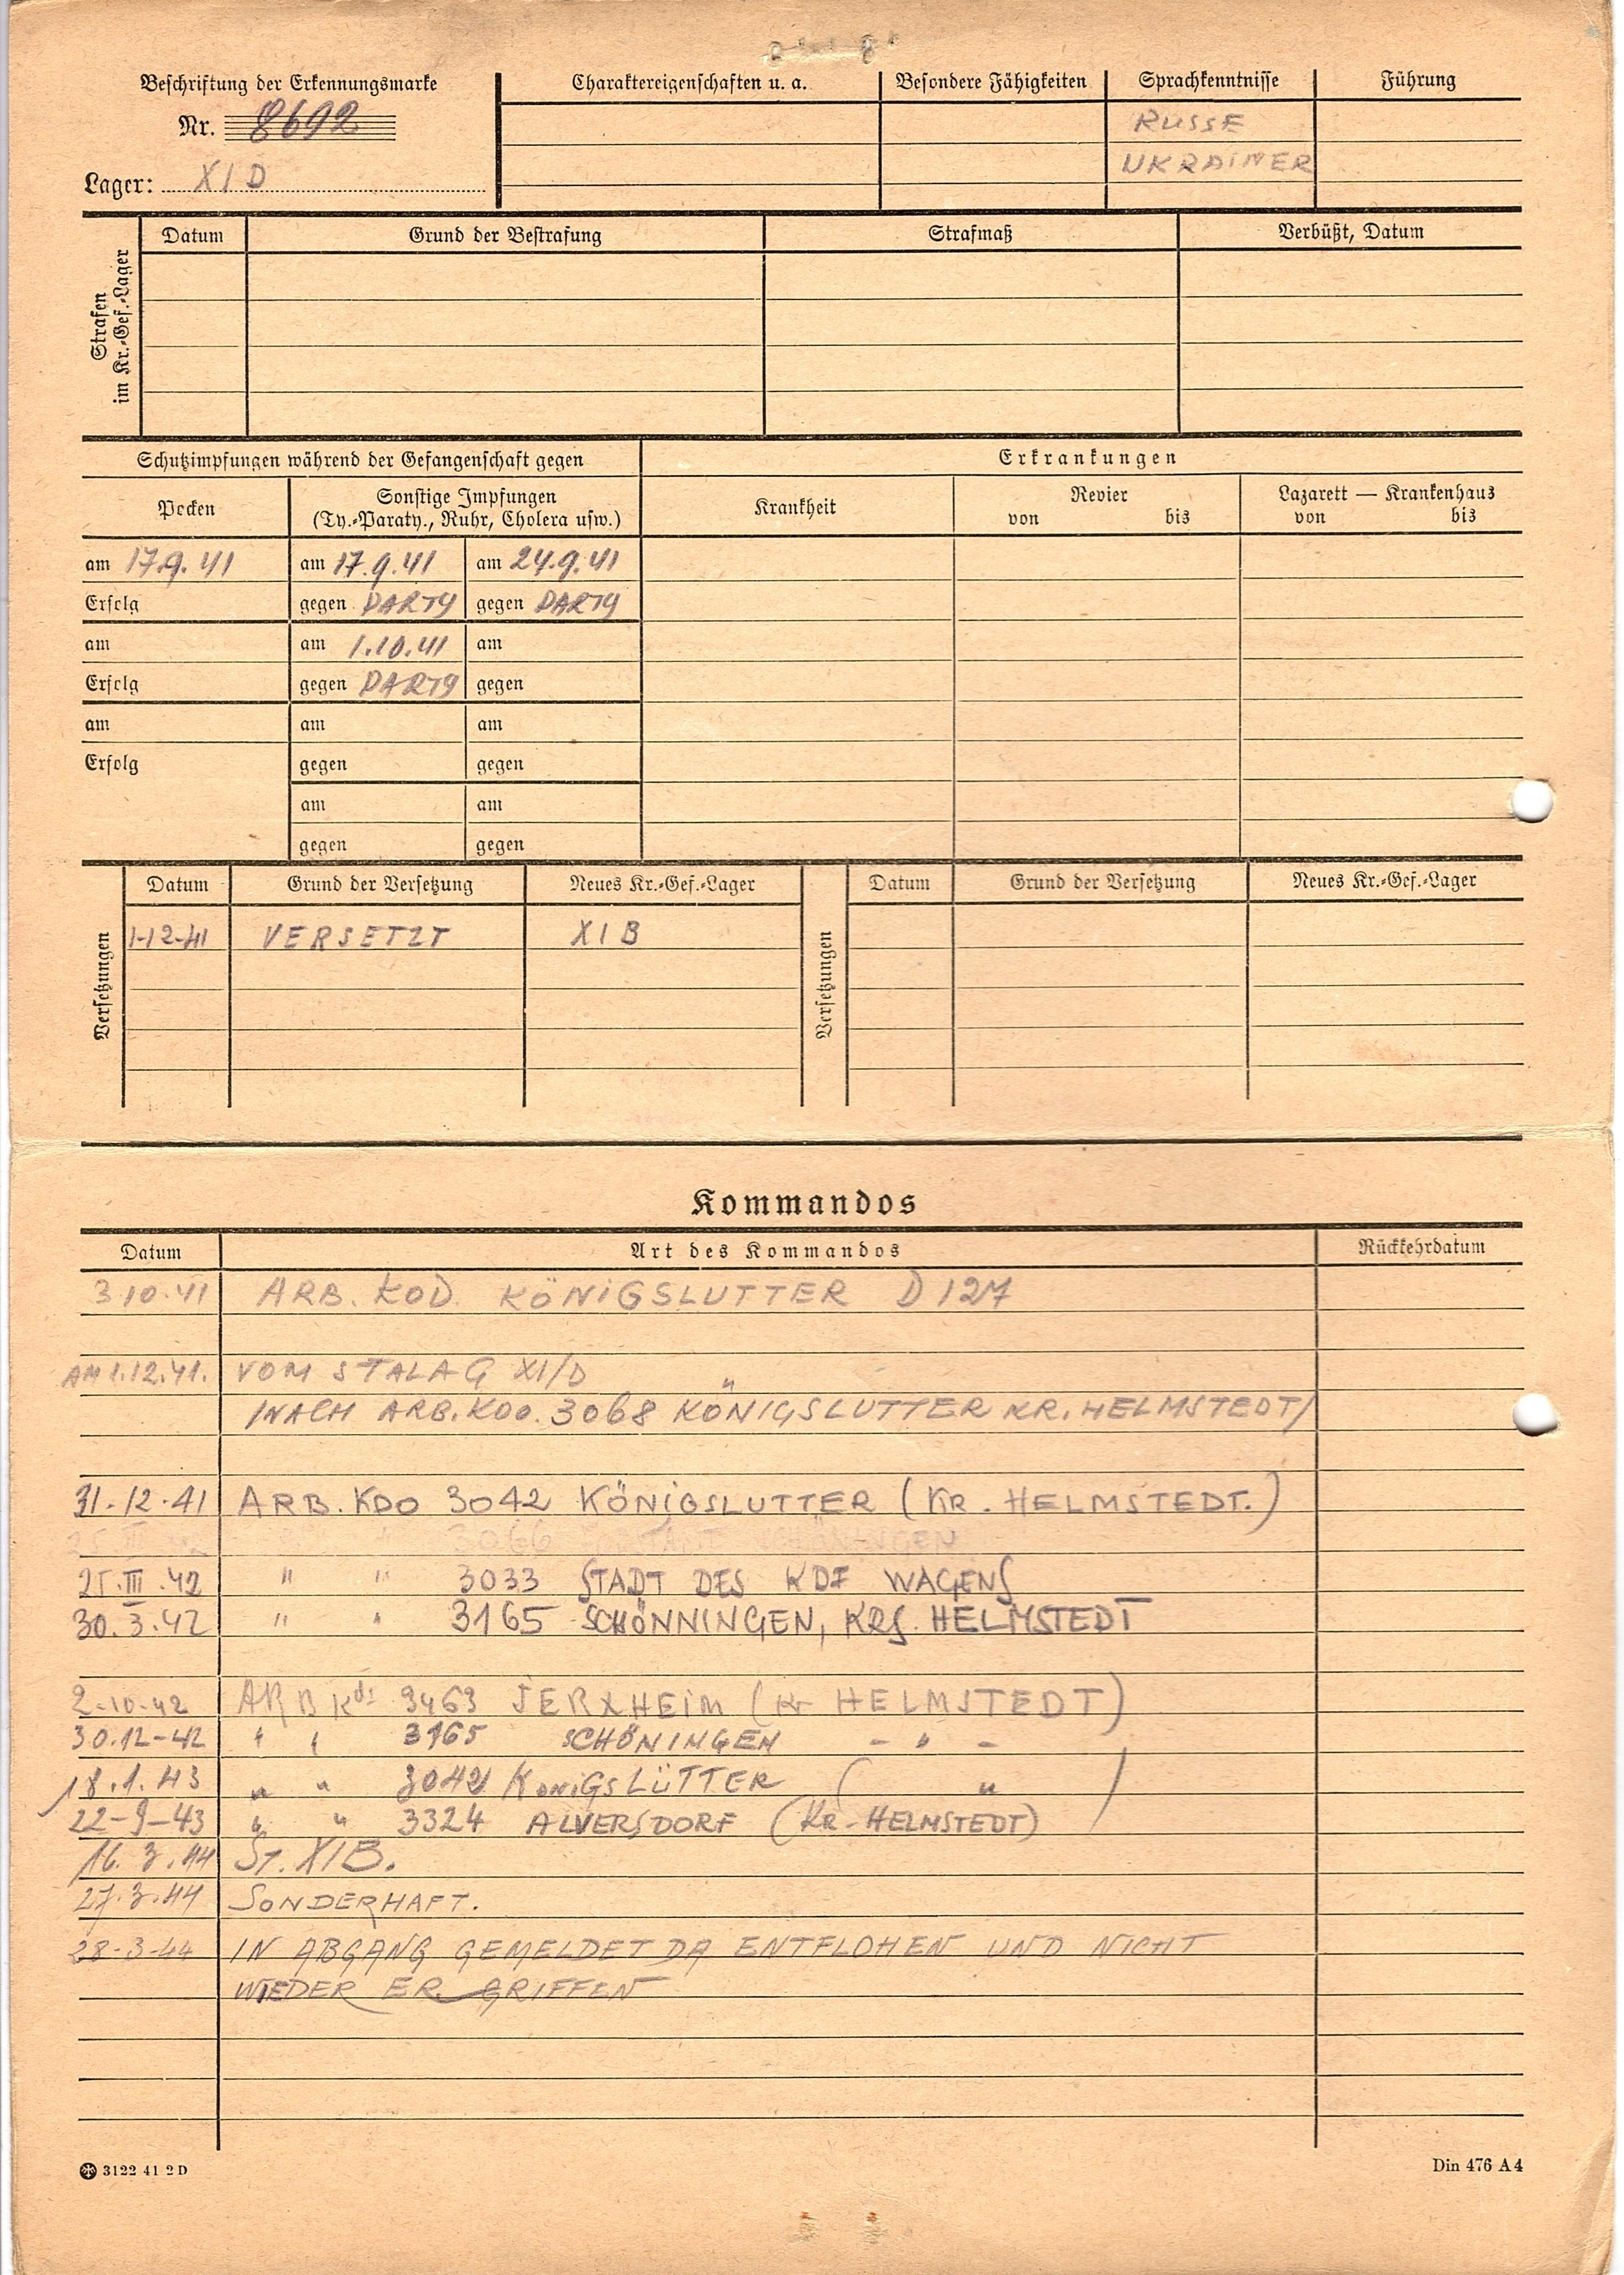 Beschriftung der Erkennungsmarke
Nr. 8692
Lager: XI D
Charaktereigenschaften u. a. Besondere Fähigkeiten Sprachkenntnisse Führung
RUSSE
UKRAINER
Strafen
im Kr.-Gef.-Lager
Datum Grund der Bestrafung Strafmaß Verbüßt, Datum
Schutzimpfungen während der Gefangenschaft gegen
Erkrankungen
Pocken
Sonstige Impfungen
(Ty.-Paraty., Ruhr, Cholera usw.)
Krankheit
Revier
von bis
Lazarett — Krankenhaus
von bis
am 17.9.41 am 17.9.41 am 24.9.41
Erfolg gegen PARTY gegen PARTY
am am 1.10.41 am
Erfolg gegen PARTY gegen
am am am
Erfolg gegen gegen
am am
gegen gegen
Versetzungen
Datum Grund der Versetzung Neues Kr.-Gef.-Lager
1-12-41 VERSETZT XI B
Versetzungen
Datum Grund der Versetzung Neues Kr.-Gef.-Lager
Kommandos
Datum Art des Kommandos Rückkehrdatum
3 10.41 ARB. KOD. KÖNIGSLUTTER D 127
AM 1.12.41. VOM STALAG XI/D
/NACH ARB. KDO. 3068 KÖNIGSLUTTER KR. HELMSTEDT/
31.12.41 ARB. KDO 3042 KÖNIGSLUTTER (KR. HELMSTEDT.)
3066 SCHÖNINGEN
25.III.42 " " 3033 STADT DES KDF WAGENS
30.3.42 " " 3165 SCHÖNNINGEN, KRS. HELMSTEDT
2-10-42 ARB Kdo 3463 JERXHEIM (Kr HELMSTEDT)
30.12-42 " " 3165 SCHÖNINGEN - " -
18.1.43 " " 3042 KÖNIGSLÜTTER ( " )
22-9-43 " " 3324 ALVERSDORF (KR-HELMSTEDT)
16.3.44 ST. XI B.
27.3.44 SONDERHAFT.
28-3-44 IN ABGANG GEMELDET DA ENTFLOHEN UND NICHT
WIEDER ERGRIFFEN
3122 41 2 D
Din 476 A 4